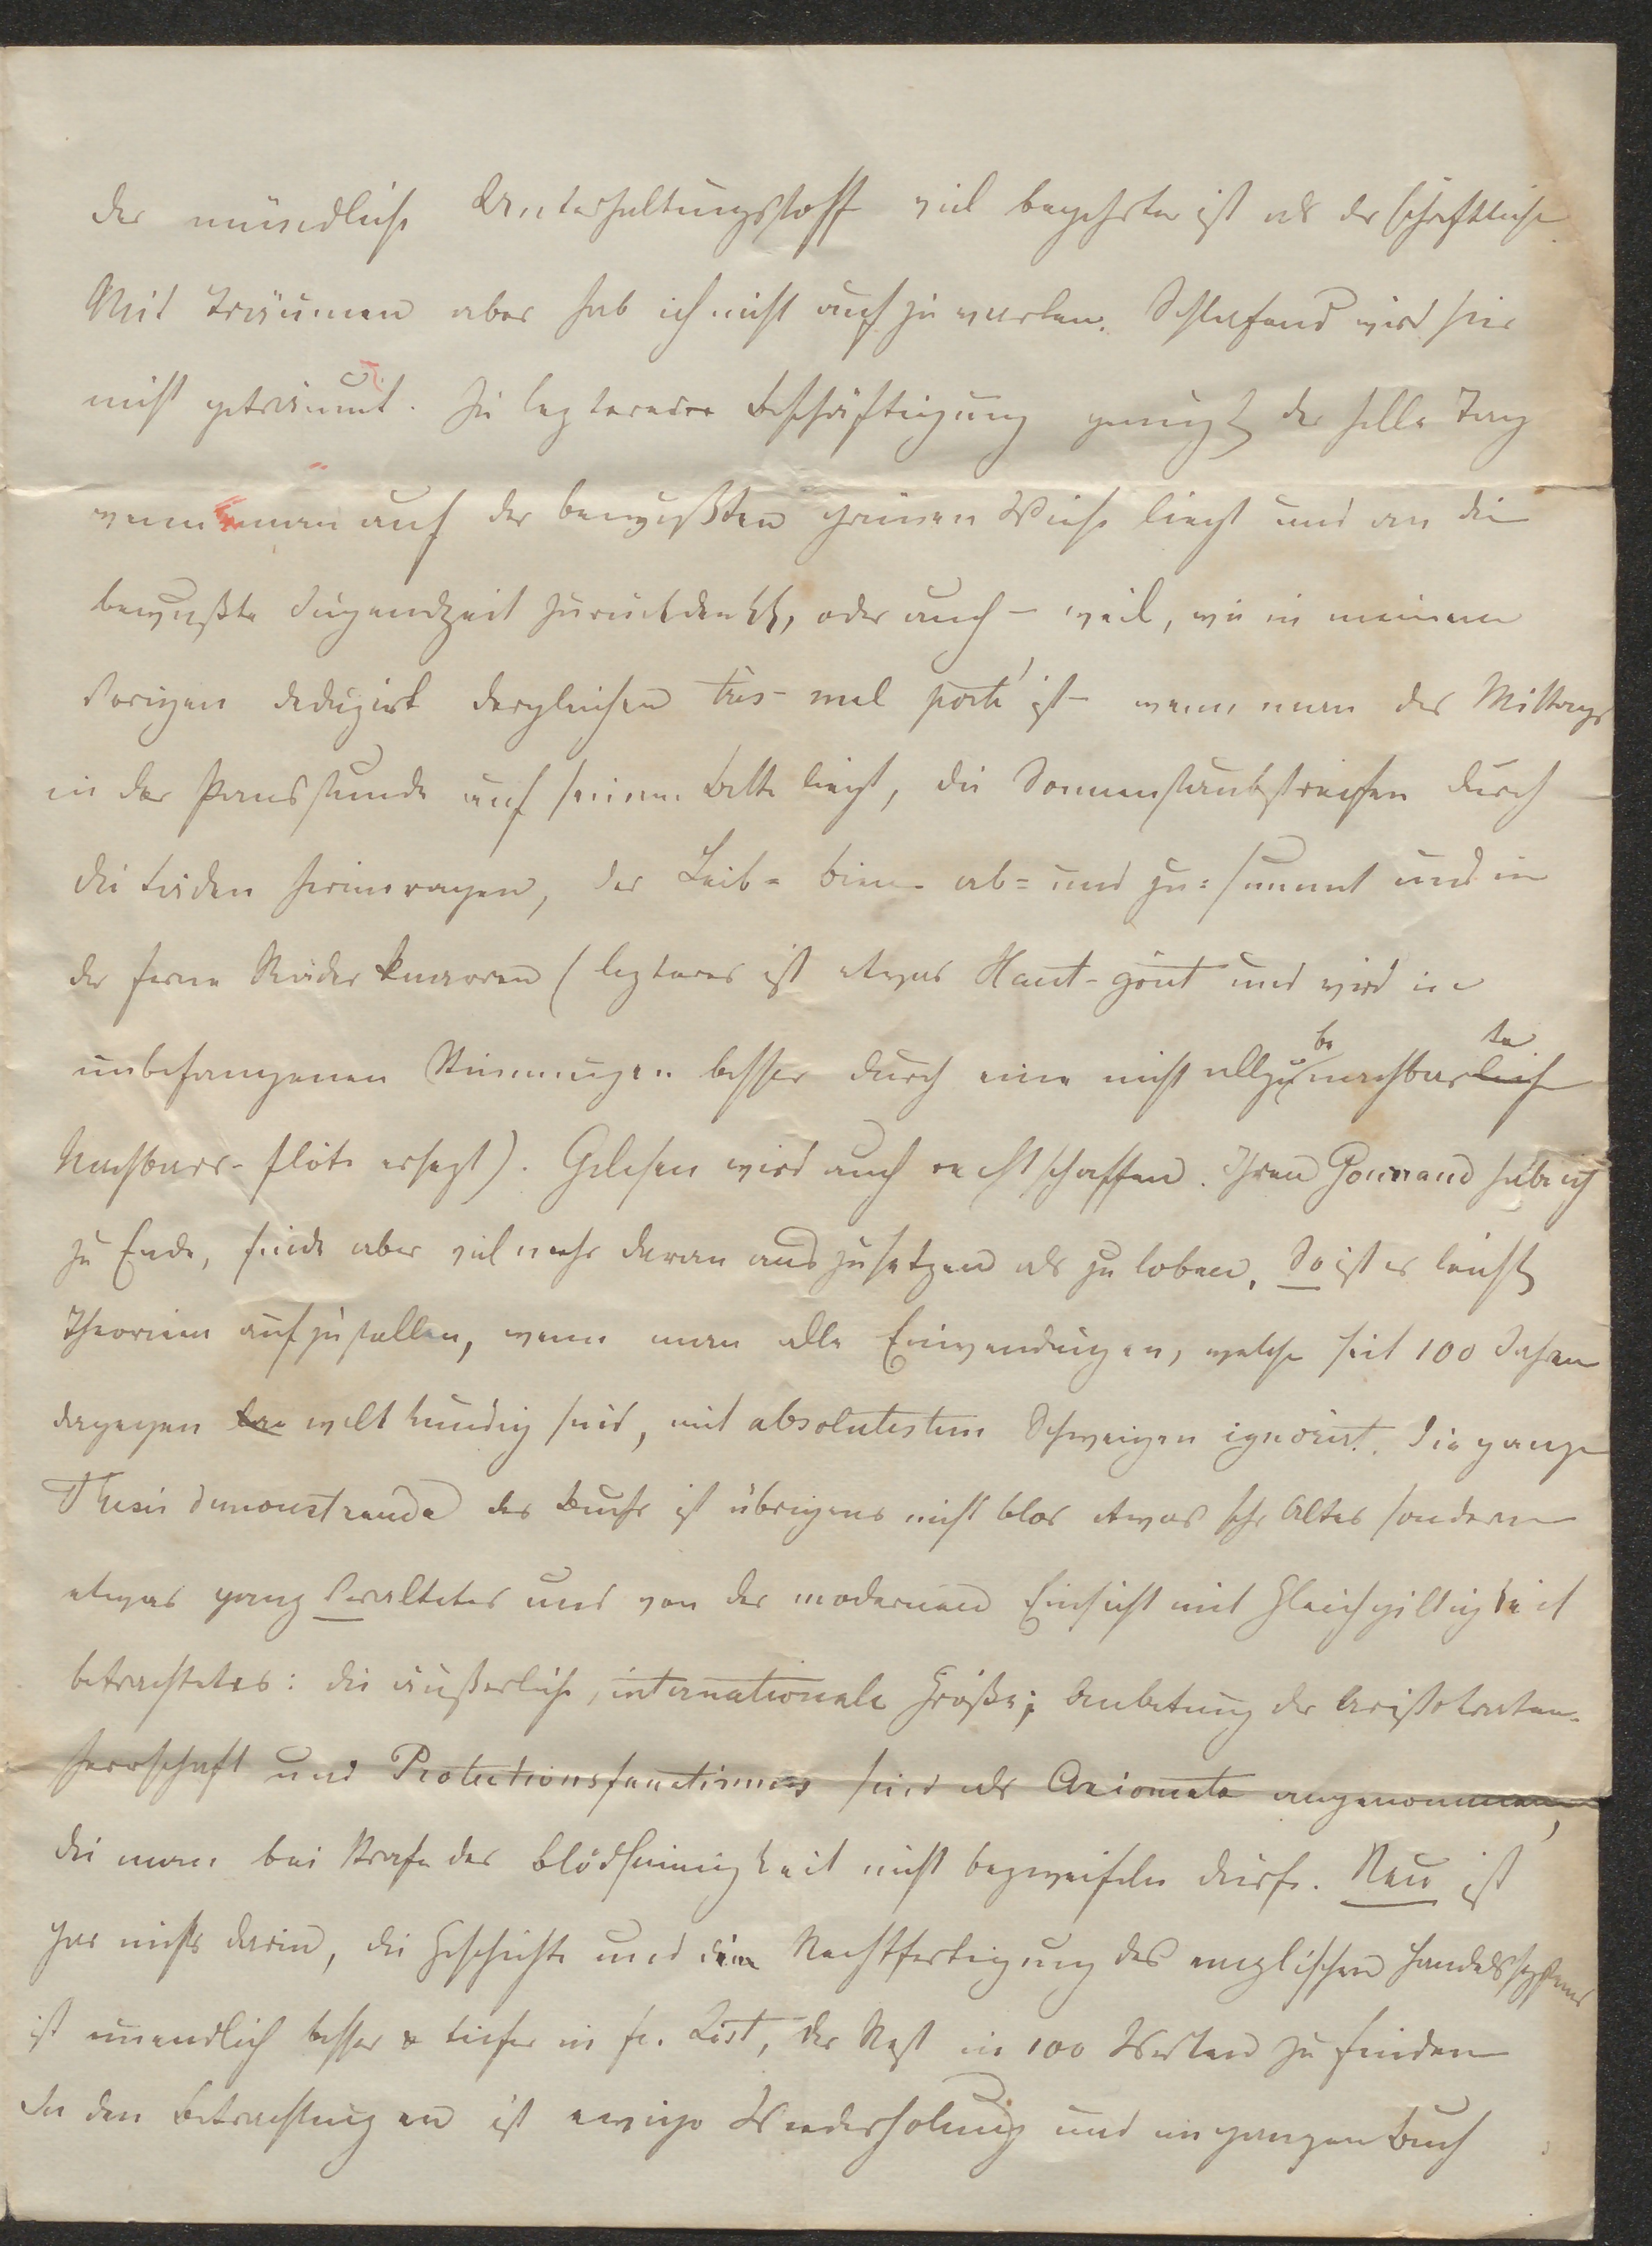 der mündliche Unterhaltungsstoff viel begehrter ist als der schriftliche.
Mit Träumen aber hab ich nicht aufzuwarten. Schlafend wird hier
nicht geträumt. Zu lezterer Beschäftigung genügt der helle Tag
wenn man auf der bewußten grünen Wiese liegt und an die
bewußte Jugendzeit zurückdenkt, oder auch – weil, wie in meinem
Vorigen deduzirt dergleichen très-mal porté ist – wenn man des Mittags
in der Hausstunde auf seinem Bette liegt, die Sonnenstaubstreifen durch
die Läden hereinragen, der Leib- Biene ab= und zu=summt und in
der Ferne Räder knarren (lezteres ist etwas Haut-goût und wird in
unbefangenen Stimmungen besser durch eine nicht allzu benachbarte
Nachbars-flöte ersezt). Gelesen wird auch rechtschaffen. Ihren Gouraud hab ich
zu Ende, finde aber viel mehr daran auszusetzen als zu loben. So ist es leicht
Theorien aufzustellen, wenn man alle Einwendungen, welche seit 100 Jahren
dagegen weltkundig sind, mit absolutestem Schweigen ignorirt. Die ganze
Thesis demonstranda des Buchs ist übrigens nicht blos etwas sehr Altes sondern
etwas ganz Veraltetes und von der modernen Einsicht mit Gleichgiltigkeit
betrachtetes: die äußerliche, internationale Größe; Anbetung der Aristokraten-
herrschaft und Protectionsfanatismus sind als Axiomata angenommen,
die man bei Strafe der Blödsinnigkeit nicht bezweifeln dürfe. Neu ist
gar nichts darin, die Geschichte und die Rechtfertigung des englischen Handelssystems
ist unendlich besser & tiefer in Fr. List, der Rest in 100 Werken zu finden
In den Betrachtungen ist ewige Wiederholung und im ganzen Buch